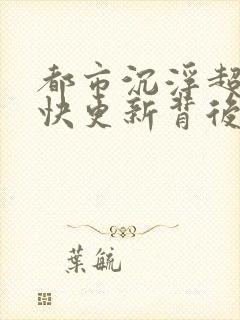 都市沉浮超
快更新背後
葉毓